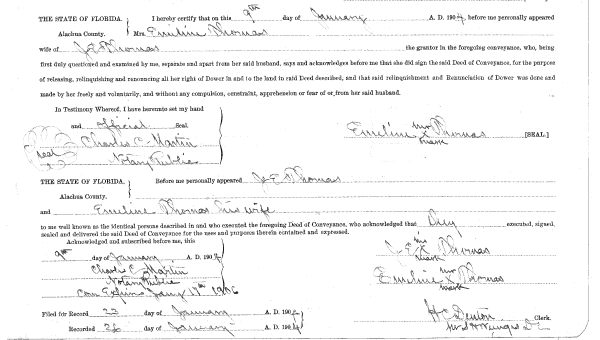 THE STATE OF FLORIDA. I hereby certify that on this 9th day of January A. D. 1904, before me personally appeared
Alachua County. Mrs Emeline Thomas
wife of J E Thomas the grantor in the foregoing conveyance, who, being
first duly questioned and examined by me, separate and apart from her said husband, says and acknowledges before me that she did sign the said Deed of Conveyance, for the purpose
of releasing, relinquishing and renouncing all her right of Dower in and to the land in said Deed described, and that said relinquishment and Renunciation of Dower was done and
made by her freely and voluntarily, and without any compulsion, constraint, apprehension or fear of or from her said husband.
In Testimony Whereof, I have hereunto set my hand
and official Seal
Charles C. Martin
seal Notary Public
Emeline her x mark Thomas [SEAL.]
THE STATE OF FLORIDA. Before me personally appeared J E Thomas
Alachua County.
and Emeline Thomas his wife
to me well known as the identical persons described in and who executed the foregoing Deed of Conveyance, who acknowledged that they executed, signed,
sealed and delivered the said Deed of Conveyance for the uses and purposes therein contained and expressed.
Acknowledged and subscribed before me, this
9th day of January A. D. 1904
Charles C. Martin
Notary Public
Com Expires Jany 11th 1906
J E his x mark Thomas
Emeline her x mark Thomas
Filed for Record 23 day of January A. D. 1904
Recorded 26 day of January A. D. 1904
H C Denton Clerk.